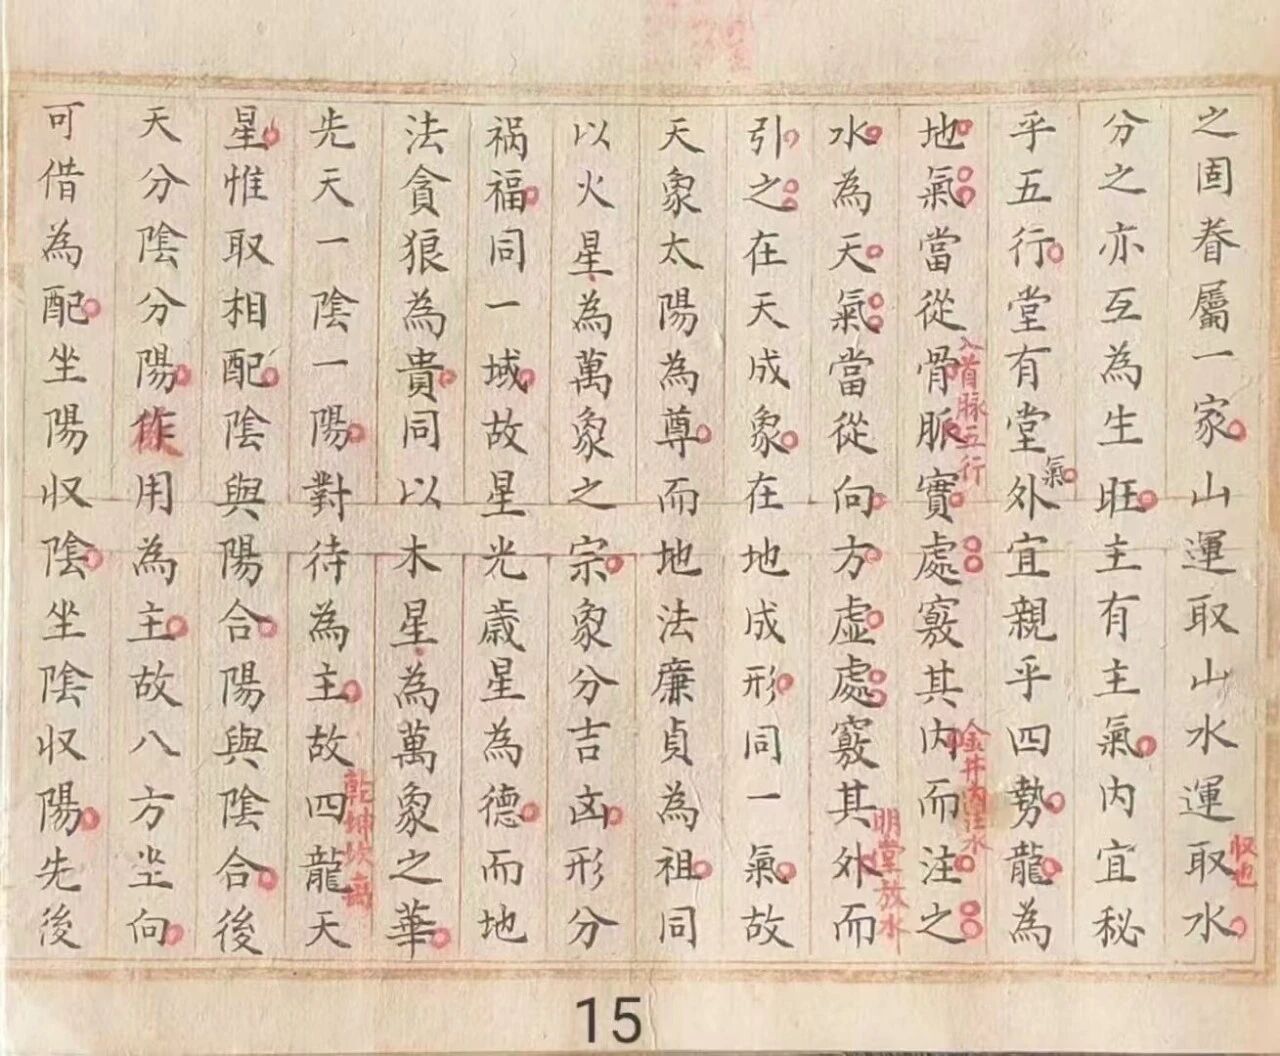 之固眷屬一家山運取山水運取水
收也
分之亦互為生旺主有主氣內宜秘
乎五行堂有堂外宜親乎四勢龍為
氣
地氣當從骨脈實處竅其內而注之
入首脉五行
金井內注水
水為天氣當從向方虛處竅其外而
明堂放水
引之在天成象在地成形同一氣故
天象太陽為尊而地法廉貞為祖同
以火星為萬象之宗象分吉凶形分
禍福同一域故星光歲星為德而地
法貪狼為貴同以木星為萬象之華
先天一陰一陽對待為主故四龍天
乾坤坎离
星惟取相配陰與陽合陽與陰合後
天分陰分陽作用為主故八方坐向
可借為配坐陽收陰坐陰收陽先後
15